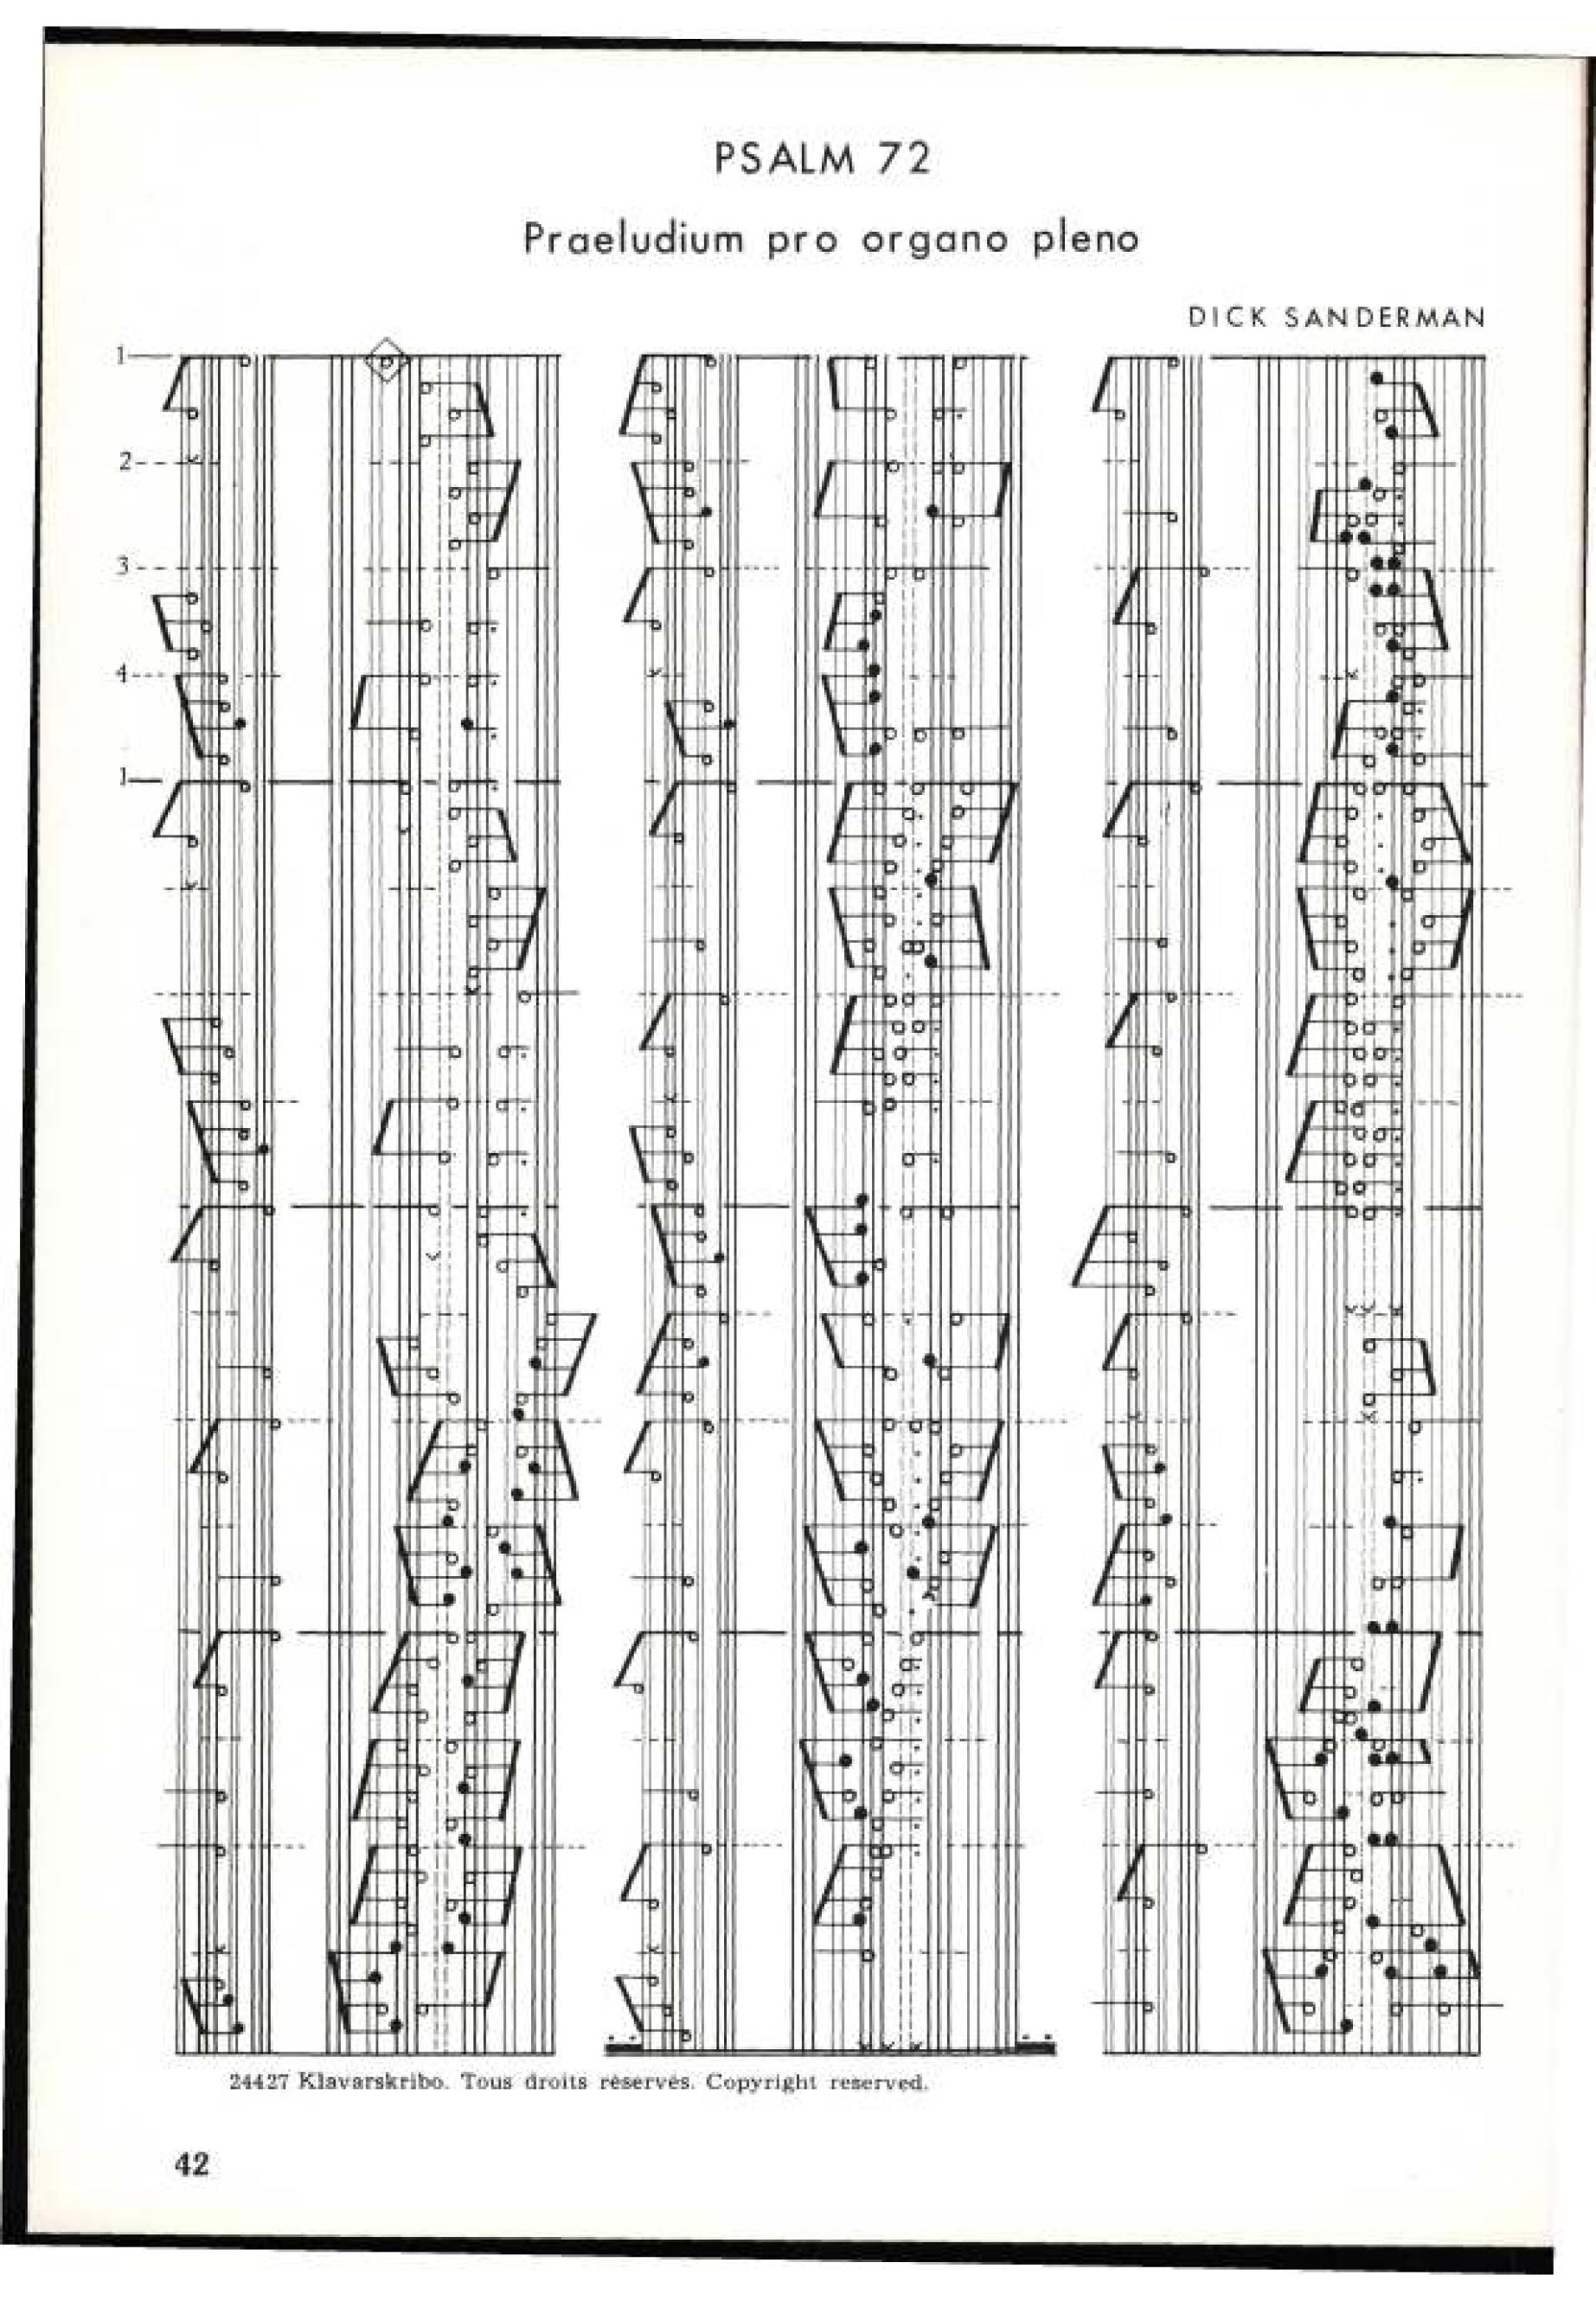 PSALM 72
Praeludium pro organo pleno
DICK SANDERMAN
1
2
3
4
1
24427 Klavarskribo. Tous droits réservés. Copyright reserved.
42